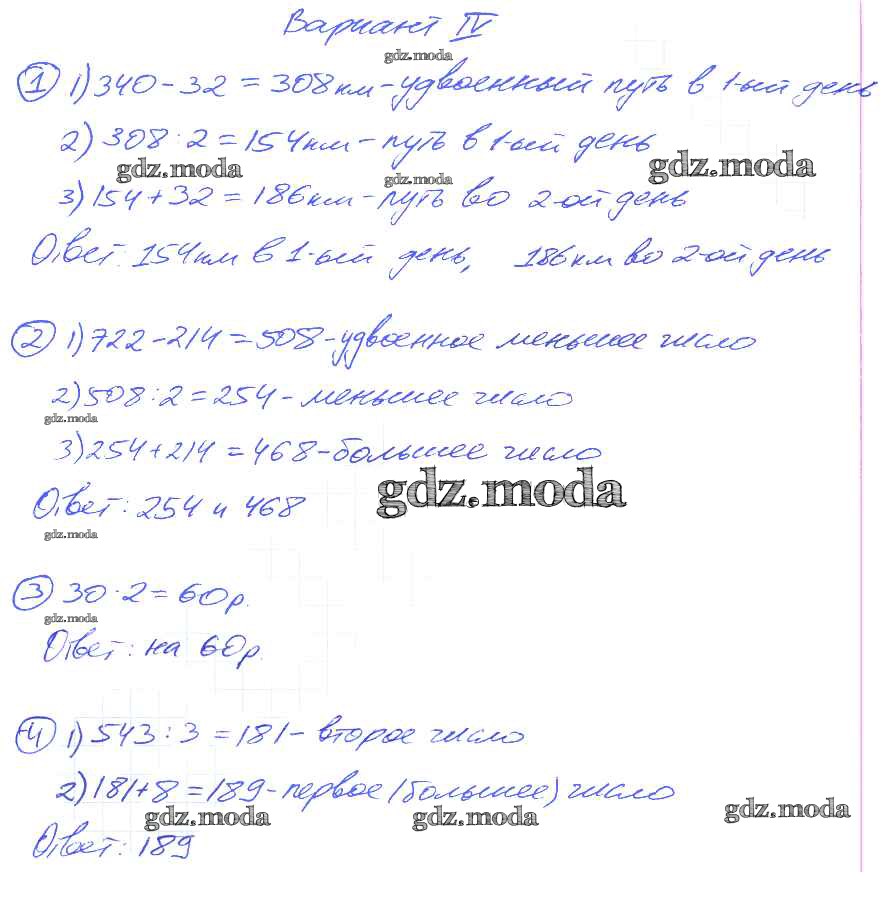 Вариант IV
gdz.moda
① 1) 340 - 32 = 308 км - удвоенный путь в 1-ый день
2) 308 : 2 = 154 км - путь в 1-ый день
gdz.moda gdz.moda gdz.moda
3) 154 + 32 = 186 км - путь во 2-ой день
Ответ: 154 км в 1-ый день, 186 км во 2-ой день
② 1) 722 - 214 = 508 - удвоенное меньшее число
2) 508 : 2 = 254 - меньшее число
gdz.moda
3) 254 + 214 = 468 - большее число
gdz.moda
Ответ: 254 и 468
gdz.moda
③ 30 · 2 = 60 р.
gdz.moda
Ответ: на 60 р.
④ 1) 543 : 3 = 181 - второе число
2) 181 + 8 = 189 - первое (большее) число
gdz.moda gdz.moda gdz.moda
Ответ: 189